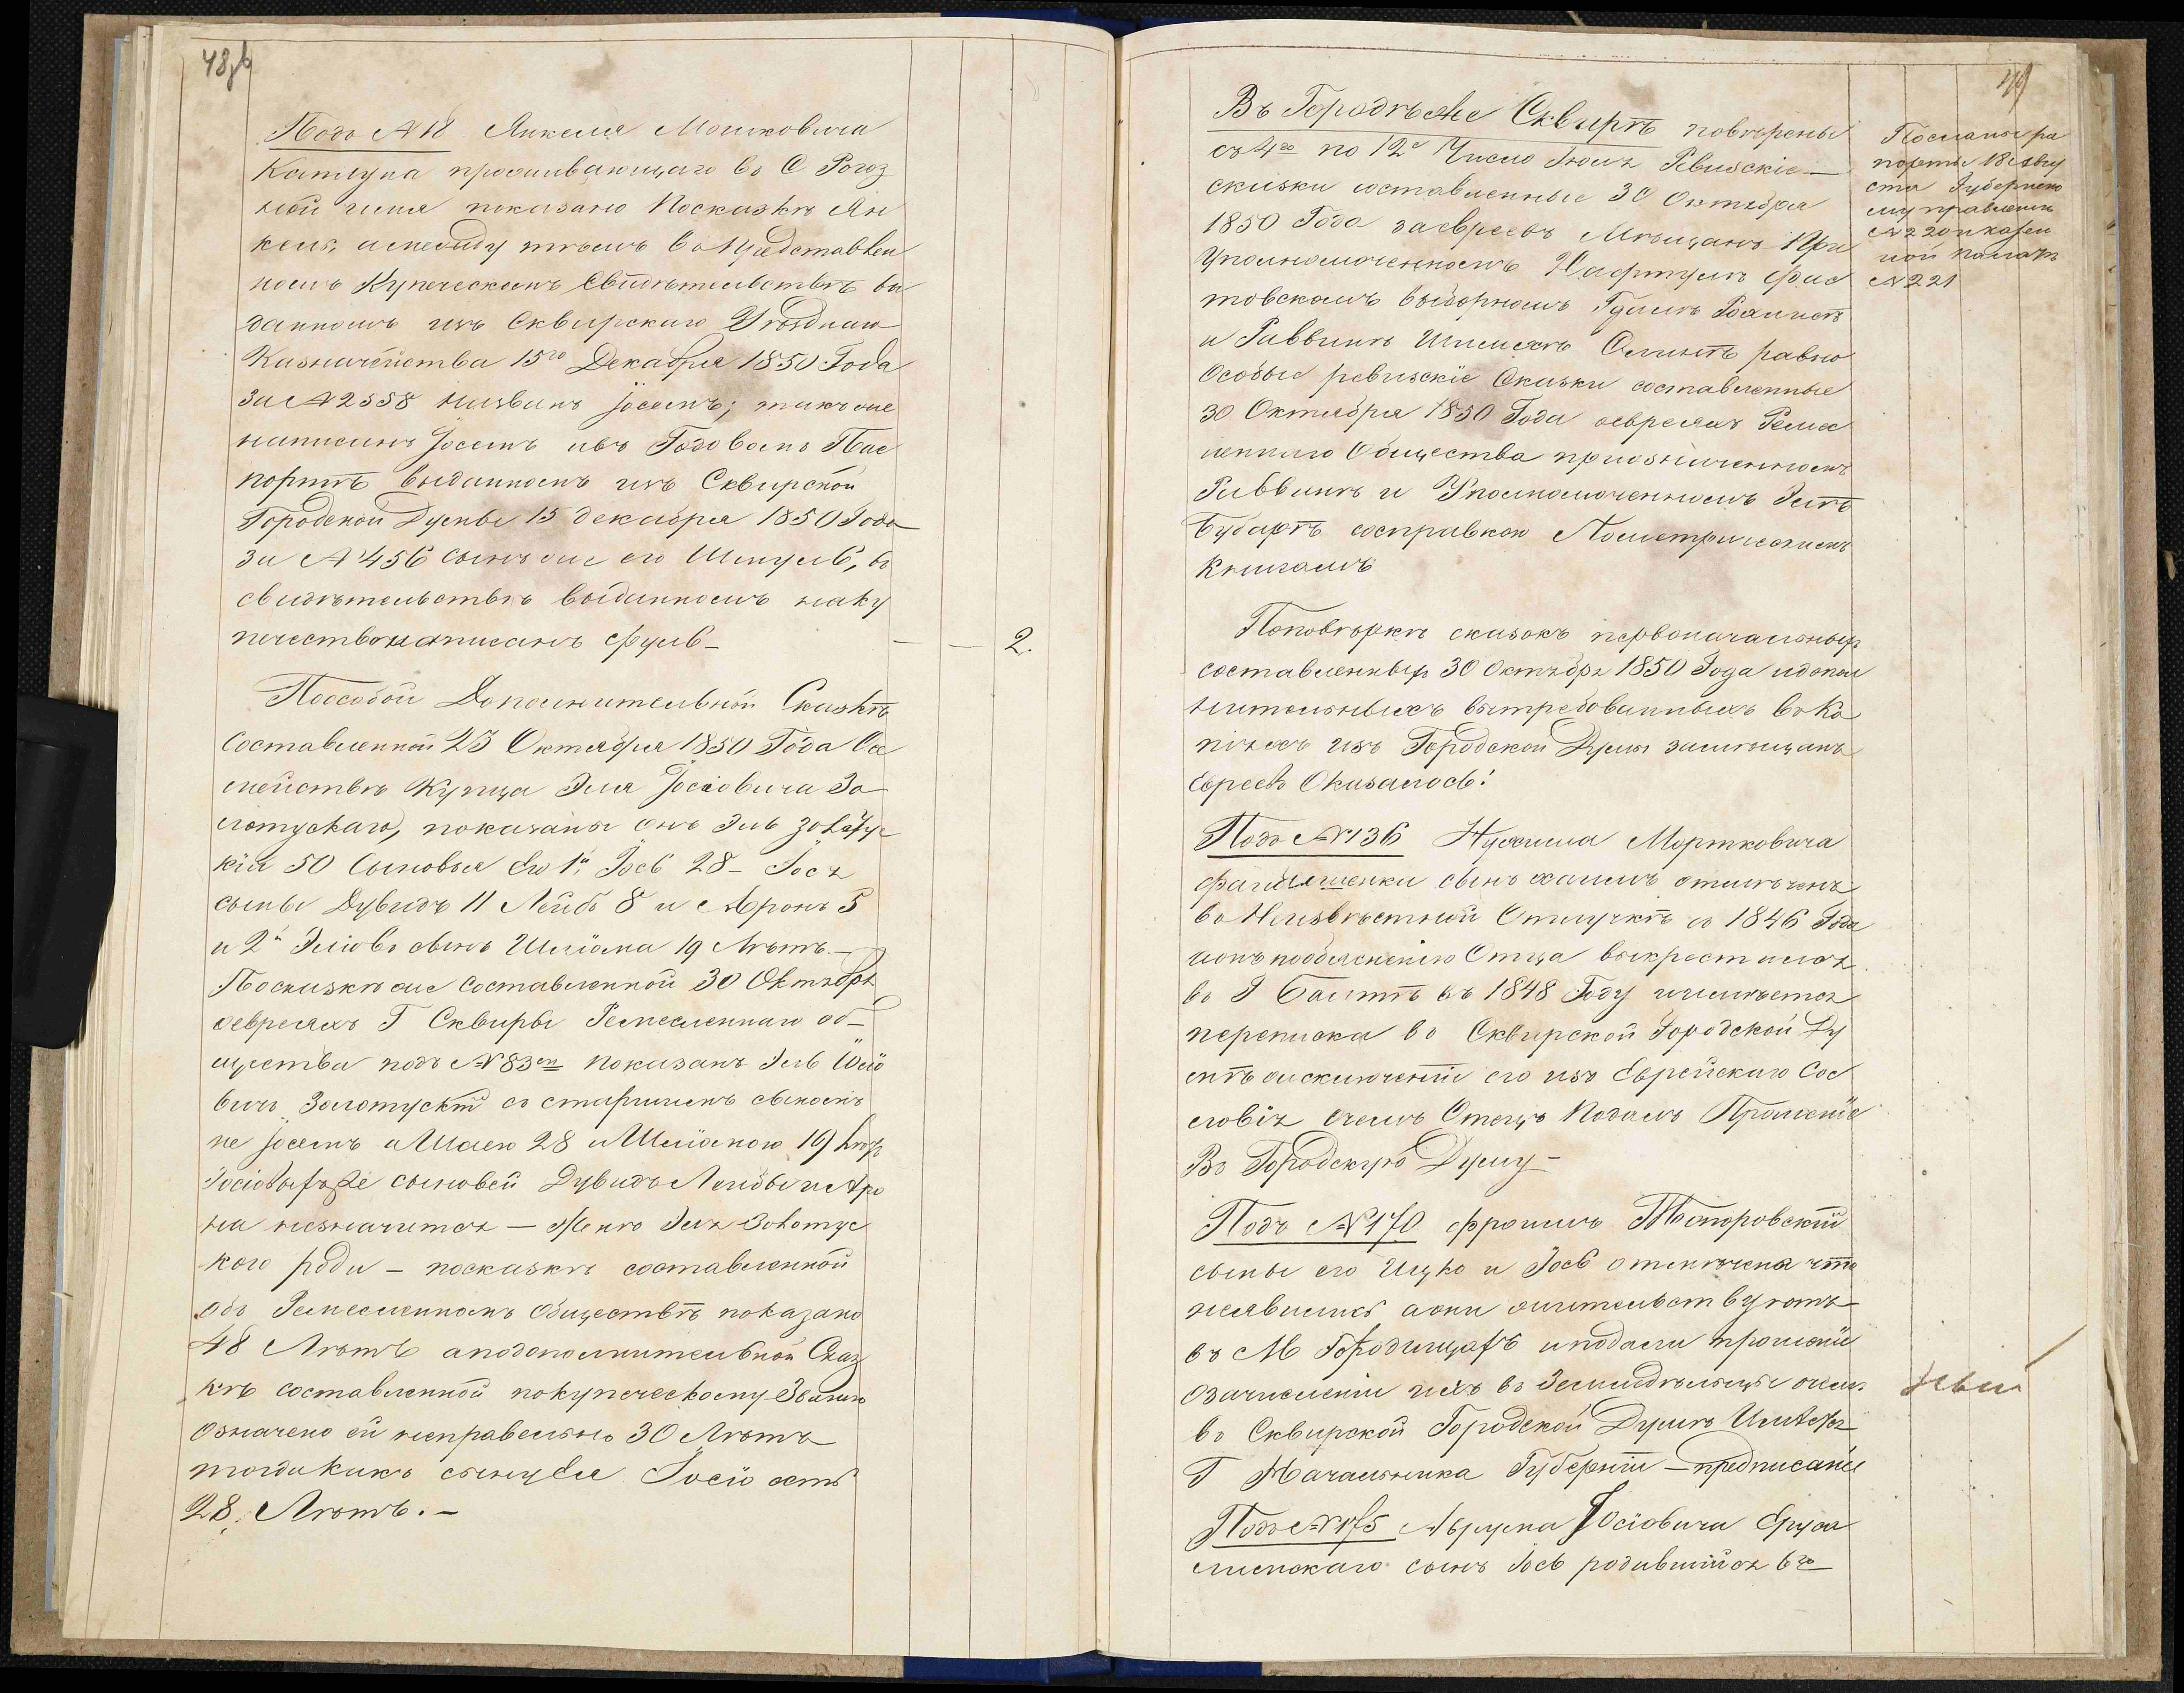 48об
Подъ №18 Янкеля Мошковича
Каплуна проживающаго въ С Рогоз
ной имя показано Посказкѣ Ян
кель, а между тѣмъ въ Представлен
номъ Купеческомъ Свидѣтельствѣ вы
данномъ изъ Сквирскаго Уѣзднаго
Казначейства 15го Декабря 1850 Года
За №2558 названъ Іосемъ; такъ же
написанъ Іосемъ ивъ Годовомъ Пас
портѣ выданномъ изъ Сквирской
Городской Думы 15 декабря 1850 Года
За №456 сынъ же его Шмуль, въ
свидѣтельствѣ выданномъ наку
печество написанъ Фуль — — — 2.
Поособой Дополнительной Сказкѣ
составленной 23 Октября 1850 Года Осе
мействѣ Купца Эля Іосіовича Зо
лотускаго, показаны онъ Эль Золотус
кій 50 Сыновья Его 1й Іось 28 – Іося
сыны Дувидъ 11 Лейбъ 8 и Аронъ 5
и 2й Эліовъ сынъ Шліома 19 Лѣтъ.—
Посказкѣ же составленной 30 Октября
оевреяхъ Г Сквиры Ремесленнаго об–
щества подъ №83мъ показанъ Эль Іосіо
вичъ Золотускій со старшимъ сыномъ
не Іосемъ а Шаею 28 и Шліомою 19 лѣтъ
Іосіовыхъ же сыновей Дувида Лейбы и Аро
на незначится — Жена Эля Золотус
кого Рода — посказкѣ составленной
Объ Ремесленномъ Обществѣ показано
48 Лѣтъ аподополнительной Сказ
кѣ составленной покупеческому Званію
Означено ей неправельно 30 Лѣтъ
тогда какъ сыну Ея Іосіо есть
28. Лѣтъ.—
49
Въ Городѣ же Сквирѣ повѣрены
съ 4го по 12е Число Іюля Ревизскіе —
скизки составленные 30 Октября
1850 Года заевреевъ Мѣщанъ При
Уполномоченномъ Нафтулѣ Фас
товскомъ выборномъ
и Раввинѣ равно
Особые ревизскіе Сказки составленные
30 Октября 1850 Года оевреяхъ Ремес
леннаго Общества приозначенномъ
Раввинѣ и Уполномоченномъ
сосправкою Пометрическимъ
Книгамъ
Посланы ра
порты 18 Авгу
ста Губернско
му правленію
№220 и казен
ной палатѣ
№221
Поповѣркѣ сказокъ первоначальныхъ
составленныхъ 30 Октября 1850 Года идопол
нительныхъ вытребованныхъ въ Ко
піяхъ изъ Городской Думы замѣщанъ
Евреевъ Оказалось:
Подъ №136 Нухима Мортковича
сынъ Хаимъ отмѣченъ
въ Неизвѣстной Отлучкѣ съ 1846 Года
ионъ пообъясненію Отца выкрестился
въ Г Балтѣ въ 1848 Году иимѣется
переписка въ Сквирской Городской Ду
мѣ оисключеніи его изъ Еврейскаго Сос
ловія очемъ Отецъ Подалъ Прошеніе
Въ Городскую Думу —
Подъ №170 Фроимъ Топоровскій
сыны его Ицко и Іось отмѣчена что
неявились аони жительствуютъ
въ М Городищахъ иподали прошеніе
озачисленіи ихъ въ Земледѣльцы очемъ
въ Сквирской Городской Думѣ Имѣется
Г Начальника Губерніи — предписаніе
Подъ №175 Аврума Іосіовича Еруса
лимскаго сынъ Іось родившійся 6го